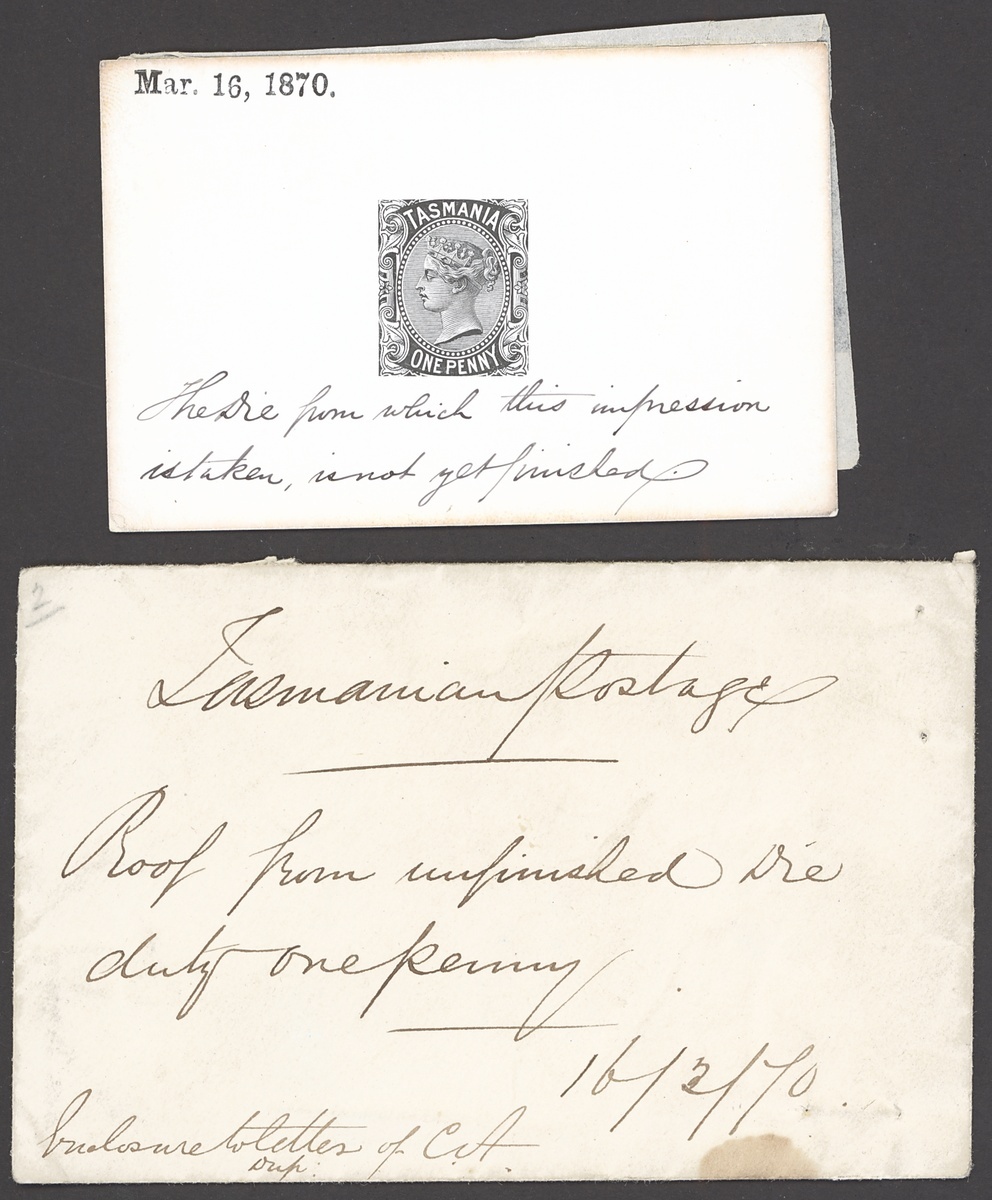 Mar. 16, 1870.
TASMANIA
ONE PENNY
The Die from which this impression
is taken, is not yet finished.
2
Tasmanian Postage
Proof from unfinished Die
duty one penny
16/3/70.
Enclosure to letter of C.A.
Dup.